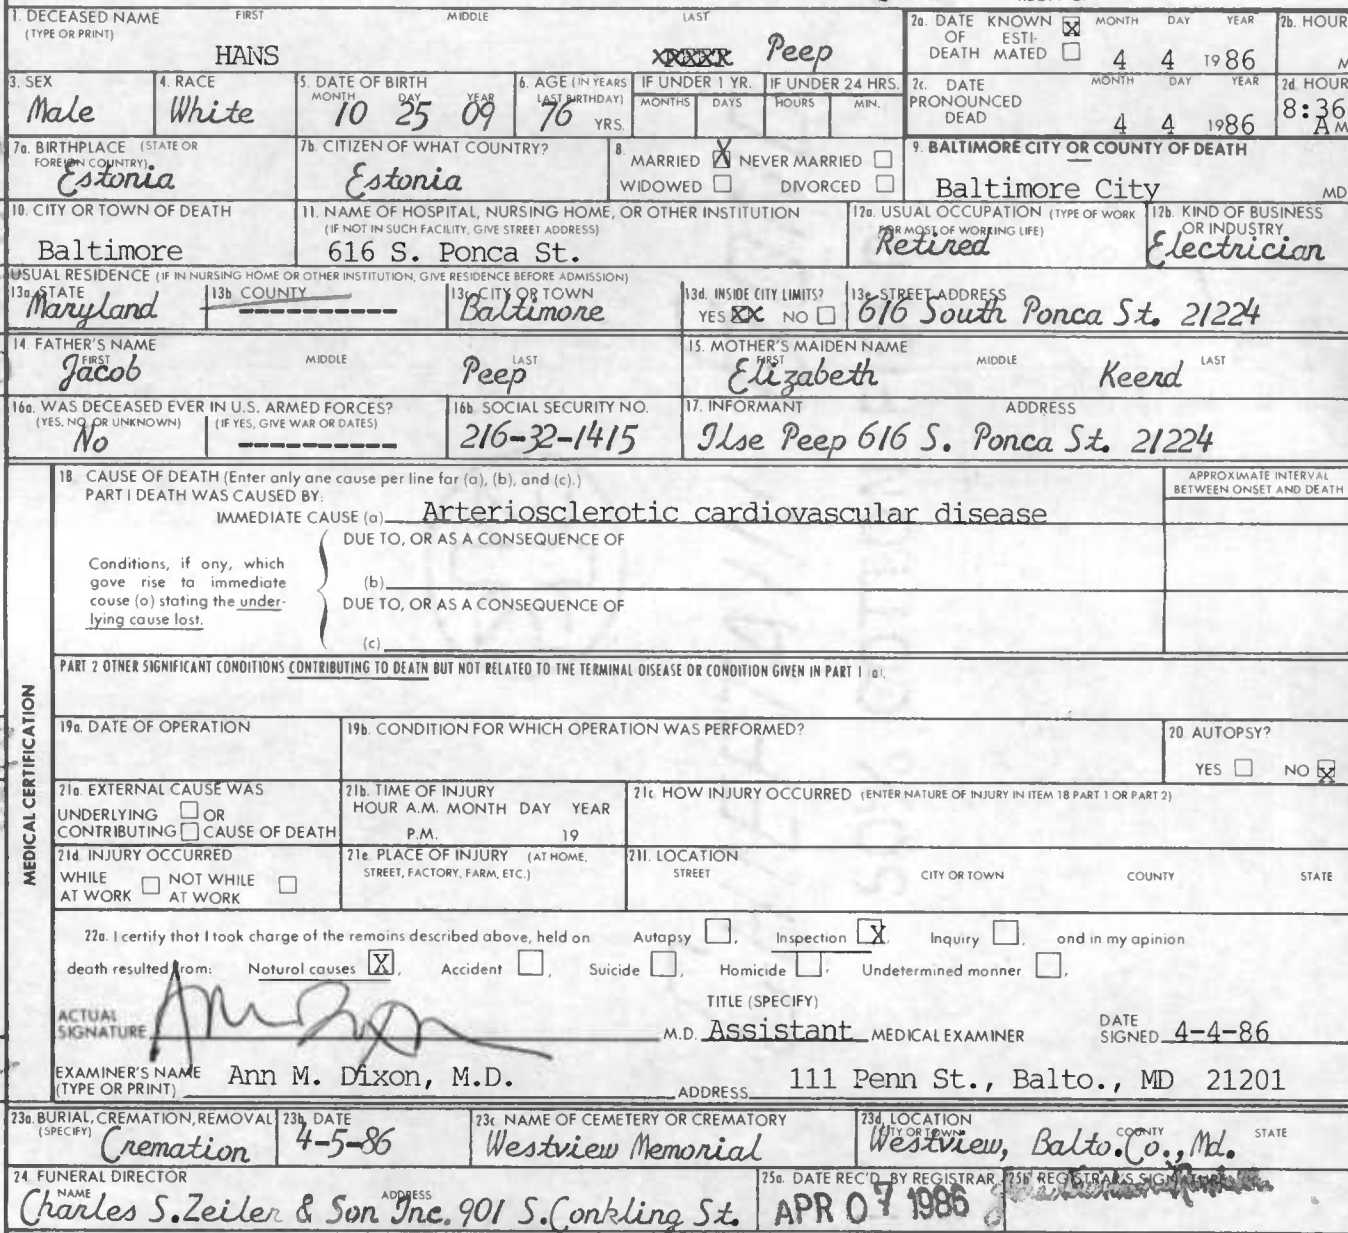 1. DECEASED NAME FIRST MIDDLE LAST
(TYPE OR PRINT)
HANS Peep
2a. DATE OF DEATH KNOWN X ESTI-MATED MONTH DAY YEAR
4 4 1986
2b. HOUR
M
3. SEX
Male
4. RACE
White
5. DATE OF BIRTH
MONTH DAY YEAR
10 25 09
6. AGE (IN YEARS LAST BIRTHDAY)
76 YRS.
IF UNDER 1 YR.
MONTHS DAYS
IF UNDER 24 HRS.
HOURS MIN.
2c. DATE PRONOUNCED DEAD MONTH DAY YEAR
4 4 1986
2d HOUR
8:36 A M
7a. BIRTHPLACE (STATE OR FOREIGN COUNTRY)
Estonia
7b. CITIZEN OF WHAT COUNTRY?
Estonia
8. MARRIED X NEVER MARRIED
WIDOWED DIVORCED
9. BALTIMORE CITY OR COUNTY OF DEATH
Baltimore City MD
10. CITY OR TOWN OF DEATH
Baltimore
11. NAME OF HOSPITAL, NURSING HOME, OR OTHER INSTITUTION
(IF NOT IN SUCH FACILITY, GIVE STREET ADDRESS)
616 S. Ponca St.
12a. USUAL OCCUPATION (TYPE OF WORK FOR MOST OF WORKING LIFE)
Retired
12b. KIND OF BUSINESS OR INDUSTRY
Electrician
USUAL RESIDENCE (IF IN NURSING HOME OR OTHER INSTITUTION, GIVE RESIDENCE BEFORE ADMISSION)
13a. STATE
Maryland
13b COUNTY
----------
13c. CITY OR TOWN
Baltimore
13d. INSIDE CITY LIMITS?
YES XX NO
13e. STREET ADDRESS
616 South Ponca St. 21224
14. FATHER'S NAME
FIRST MIDDLE LAST
Jacob Peep
15. MOTHER'S MAIDEN NAME
FIRST MIDDLE LAST
Elizabeth Keerd
16a. WAS DECEASED EVER IN U.S. ARMED FORCES?
(YES, NO, OR UNKNOWN) (IF YES, GIVE WAR OR DATES)
No ----------
16b. SOCIAL SECURITY NO.
216-32-1415
17. INFORMANT ADDRESS
Ilse Peep 616 S. Ponca St. 21224
MEDICAL CERTIFICATION
18 CAUSE OF DEATH (Enter only one cause per line for (a), (b), and (c).)
PART I DEATH WAS CAUSED BY:
IMMEDIATE CAUSE (a) Arteriosclerotic cardiovascular disease
APPROXIMATE INTERVAL
BETWEEN ONSET AND DEATH
DUE TO, OR AS A CONSEQUENCE OF
Conditions, if any, which
gove rise ta immediate
couse (o) stating the under-
lying cause lost.
(b)
DUE TO, OR AS A CONSEQUENCE OF
(c)
PART 2 OTHER SIGNIFICANT CONDITIONS CONTRIBUTING TO DEATH BUT NOT RELATED TO THE TERMINAL DISEASE OR CONDITION GIVEN IN PART 1 (a).
19a. DATE OF OPERATION
19b. CONDITION FOR WHICH OPERATION WAS PERFORMED?
20 AUTOPSY?
YES NO X
21a. EXTERNAL CAUSE WAS
UNDERLYING OR
CONTRIBUTING CAUSE OF DEATH
21b. TIME OF INJURY
HOUR A.M. MONTH DAY YEAR
P.M. 19
21c HOW INJURY OCCURRED (ENTER NATURE OF INJURY IN ITEM 18 PART 1 OR PART 2)
21d INJURY OCCURRED
WHILE AT WORK NOT WHILE AT WORK
21e PLACE OF INJURY (AT HOME, STREET, FACTORY, FARM, ETC.)
21f. LOCATION
STREET CITY OR TOWN COUNTY STATE
22a. I certify that I took charge of the remoins described above, held on Autapsy , Inspection X, Inquiry , ond in my apinion
death resulted from: Noturol causes X, Accident , Suicide , Homicide , Undetermined monner ,
ACTUAL
SIGNATURE
TITLE (SPECIFY)
M.D. Assistant MEDICAL EXAMINER
DATE
SIGNED 4-4-86
EXAMINER'S NAME
(TYPE OR PRINT) Ann M. Dixon, M.D.
ADDRESS 111 Penn St., Balto., MD 21201
23a. BURIAL, CREMATION, REMOVAL
(SPECIFY) Cremation
23b. DATE
4-5-86
23c NAME OF CEMETERY OR CREMATORY
Westview Memorial
23d. LOCATION
CITY OR TOWN COUNTY STATE
Westview, Balto. Co., Md.
24 FUNERAL DIRECTOR
NAME ADDRESS
Charles S. Zeiler & Son Inc. 901 S. Conkling St.
25a. DATE REC'D BY REGISTRAR
APR 07 1986
25b REGISTRAR'S SIGNATURE